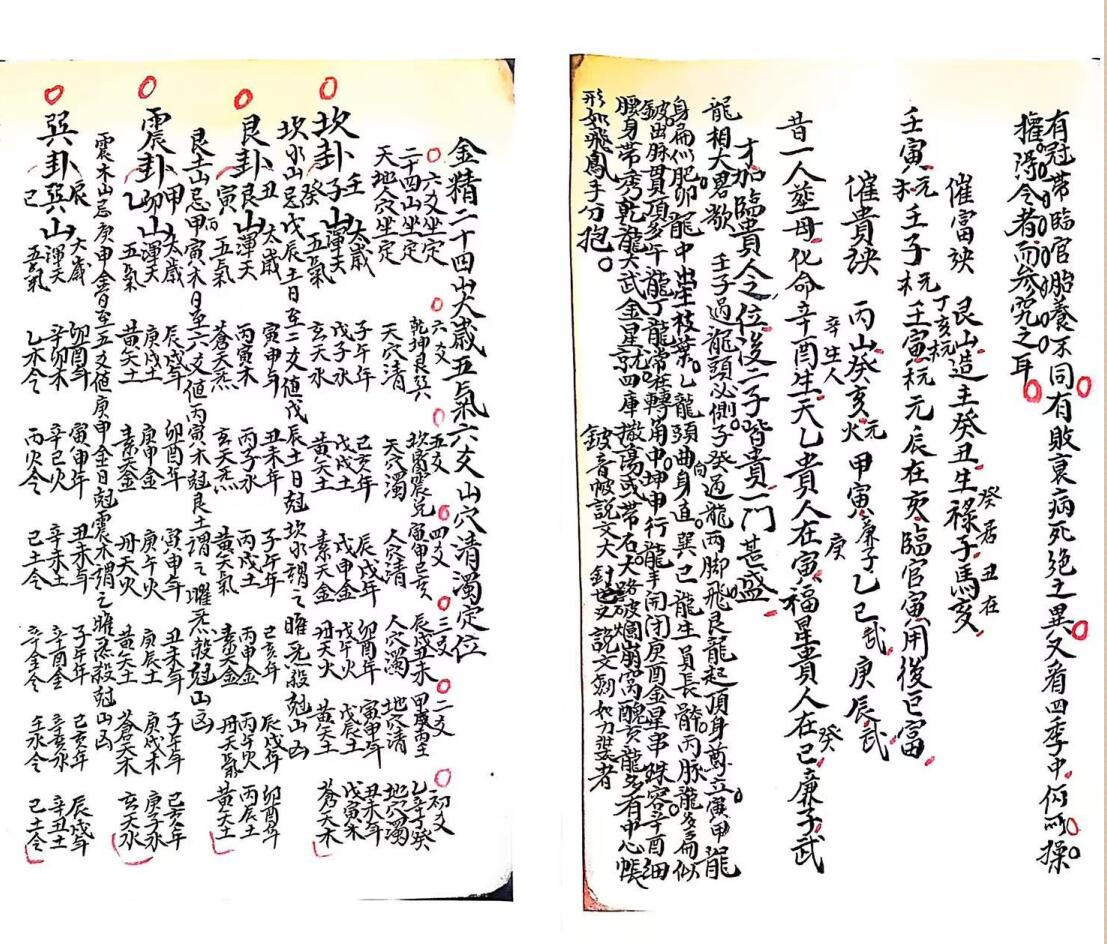 有冠帶臨官胎養不同有敗衰病死絕之異又看四季中何所操
權得令者而參究之耳
催富訣 艮山造主癸丑生祿子馬亥
癸居 丑在
壬寅 壬子 丁亥 壬寅 元辰在亥臨官寅用後巨富
催貴訣 丙山癸亥火元 甲寅廉子 乙巳武 庚辰武
昔一人葬母化命辛酉生天乙貴人在寅福星貴人在巳廉子武
辛生人 庚 癸
才加臨貴人之位後二子皆貴一門甚盛
龍相大畧歌 壬子過龍頭必側子癸過龍兩脚飛艮龍起頂身尊立寅甲龍
身扁似肥卯龍中出生枝葉乙龍頭曲身向直巽巳龍生員長骻丙脉龍多扁似
鈹出脉貫頂多午龍丁龍常在轉角中坤申行龍手開闭庚酉金星串珠容辛酉細
腰身帶秀乾龍大武金星就四庫撤高或帶石大器破燗崩窩醜亥龍多有中心帳
形如飛鳳手分抱。
鈹音帔說文大針也又說文劍如刀裝者
金精二十四山大歲五氣六爻山穴清濁定位
六爻坐定 六爻 五爻 四爻 三爻 二爻 初爻
二十四山坐定 乾坤艮巽 坎离震兌 寅申巳亥 辰戌丑未 甲庚丙壬 乙辛丁癸
天地人穴坐定 天穴清 天穴濁 人穴清 人穴濁 地穴清 地穴濁
坎卦壬子癸山 太歲 子午年 巳亥年 辰戌年 卯酉年 寅申年 丑未年
渾天 戊子水 戊戌土 戊申金 戊午火 戊辰土 戊寅木
五氣 玄天水 黃天土 素天金 丹天火 黃天土 蒼天木
坎水山忌戊辰土日至二爻值戊辰土日尅坎水謂之曜炁殺尅山凶
艮卦丑艮寅山 太歲 寅申年 丑未年 子午年 巳亥年 辰戌年 卯酉年
渾天 丙寅木 丙子水 丙戌土 丙申金 丙午火 丙辰土
五氣 蒼天炁 玄天炁 黃天氣 素天金 丹天氣 黃天土
艮土山忌甲丙寅木日至六爻值丙寅木尅艮土謂之曜炁殺尅山凶
震卦甲卯乙山 太歲 辰戌年 卯酉年 寅申年 丑未年 子午年 巳亥年
渾天 庚戌土 庚申金 庚午火 庚辰土 庚戌木 庚子水
五氣 黃天土 素天金 丹天火 黃天土 蒼天木 玄天水
震木山忌庚申金日至五爻值庚申金日尅震木謂之曜炁殺尅山凶
巽卦辰巽巳山 太歲 卯酉年 寅申年 丑未年 子午年 巳亥年 辰戌年
渾天 辛卯木 辛巳火 辛未土 辛酉金 辛亥水 辛丑土
五氣 乙木令 丙火令 己土令 辛金令 壬水令 己土令